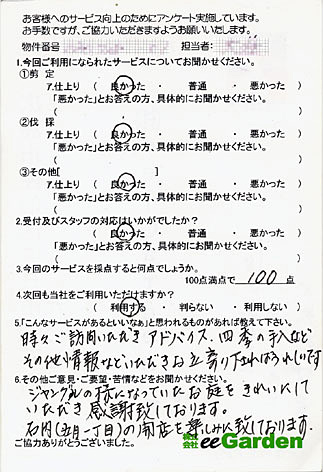 お客様へのサービス向上のためにアンケート実施しています。
お手数ですが、ご協力いただきますようお願いいたします。
物件番号 担当者:
1.今回ご利用になられたサービスについてお聞かせください。
①剪 定
7.仕上り ( 良かった ・ 普通 ・ 悪かった )
「悪かった」とお答えの方、具体的にお聞かせください。
( )
②伐 採
7.仕上り ( 良かった ・ 普通 ・ 悪かった )
「悪かった」とお答えの方、具体的にお聞かせください。
( )
③その他[ ]
7.仕上り ( 良かった ・ 普通 ・ 悪かった )
「悪かった」とお答えの方、具体的にお聞かせください。
( )
2.受付及びスタッフの対応はいかがでしたか?
( 良かった ・ 普通 ・ 悪かった )
「悪かった」とお答えの方、具体的にお聞かせください。
( )
3.今回のサービスを採点すると何点でしょうか。
100点満点で 100 点
4.次回も当社をご利用いただけますか?
( 利用する ・ 判らない ・ 利用しない )
5.「こんなサービスがあるといいなぁ」と思われるものがあれば教えて下さい。
時々ご訪問いただきアドバイス、四季の手入など
その他情報などいただきお立寄り下さればうれしいです
6.その他ご意見・ご要望・苦情などをお聞かせください。
ジャングルの様になっていたお庭をきれいにして
いただき感謝致しております。
石内(五月一丁目)の開店を楽しみに致しております。
ご協力ありがとうございました。
株式会社 eeGarden